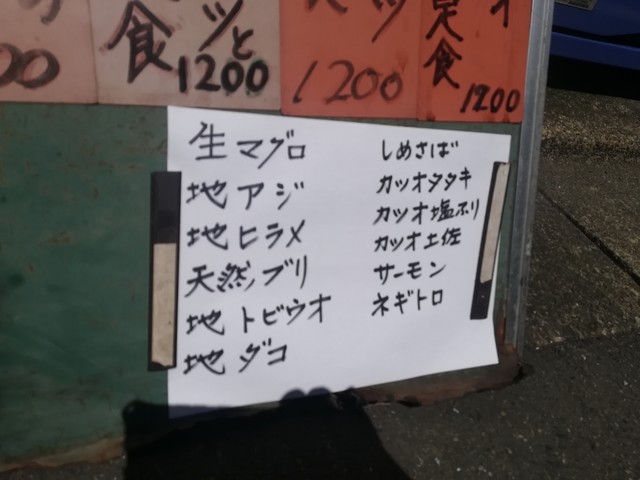 00
食
ツと
1200
ツ
1200
定食
1200
生マグロ
地アジ
地ヒラメ
天然ブリ
地トビウオ
地ダコ
しめさば
カツオタタキ
カツオ塩ふり
カツオ土佐
サーモン
ネギトロ